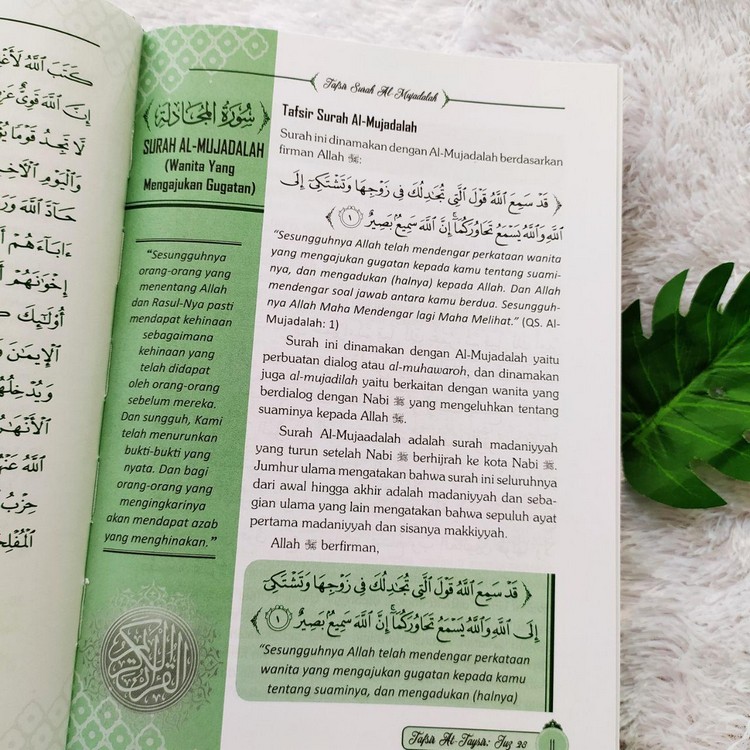 كَتَبَ ٱللَّهُ
إِنَّ ٱللَّهَ قَوِيٌّ
لَّا تَجِدُ قَوْمًا
وَٱلْيَوْمِ
حَآدَّ ٱللَّهَ
ءَابَآءَهُمْ
إِخْوَٰنَهُمْ
أُو۟لَٰٓئِكَ
ٱلْإِيمَٰنَ
وَيُدْخِلُهُمْ
ٱلْأَنْهَٰرُ
ٱللَّهُ عَنْهُمْ
حِزْبُ
سُورَةُ المُجَادلة
SURAH AL-MUJADALAH
(Wanita Yang
Mengajukan Gugatan)
“Sesungguhnya
orang-orang yang
menentang Allah
dan Rasul-Nya pasti
mendapat kehinaan
sebagaimana
kehinaan yang
telah didapat
oleh orang-orang
sebelum mereka.
Dan sungguh, Kami
telah menurunkan
bukti-bukti yang
nyata. Dan bagi
orang-orang yang
mengingkarinya
akan mendapat azab
yang menghinakan.”
القرآن الكريم
Tafsir Surah Al-Mujadalah
Tafsir Surah Al-Mujadalah
Surah ini dinamakan dengan Al-Mujadalah berdasarkan
firman Allah ﷻ:
﴿ قَدْ سَمِعَ ٱللَّهُ قَوْلَ ٱلَّتِى تُجَٰدِلُكَ فِى زَوْجِهَا وَتَشْتَكِىٓ إِلَى
ٱللَّهِ وَٱللَّهُ يَسْمَعُ تَحَاوُرَكُمَآ ۚ إِنَّ ٱللَّهَ سَمِيعٌۢ بَصِيرٌ ١ ﴾
“Sesungguhnya Allah telah mendengar perkataan wanita
yang mengajukan gugatan kepada kamu tentang suami-
nya, dan mengadukan (halnya) kepada Allah. Dan Allah
mendengar soal jawab antara kamu berdua. Sesungguh-
nya Allah Maha Mendengar lagi Maha Melihat.” (QS. Al-
Mujadalah: 1)
Surah ini dinamakan dengan Al-Mujadalah yaitu
perbuatan dialog atau al-muhawaroh, dan dinamakan
juga al-mujadilah yaitu berkaitan dengan wanita yang
berdialog dengan Nabi ﷺ yang mengeluhkan tentang
suaminya kepada Allah ﷻ.
Surah Al-Mujaadalah adalah surah madaniyyah
yang turun setelah Nabi ﷺ berhijrah ke kota Nabi ﷺ.
Jumhur ulama mengatakan bahwa surah ini seluruhnya
dari awal hingga akhir adalah madaniyyah dan seba-
gian ulama yang lain mengatakan bahwa sepuluh ayat
pertama madaniyyah dan sisanya makkiyyah.
Allah ﷻ berfirman,
﴿ قَدْ سَمِعَ ٱللَّهُ قَوْلَ ٱلَّتِى تُجَٰدِلُكَ فِى زَوْجِهَا وَتَشْتَكِىٓ
إِلَى ٱللَّهِ وَٱللَّهُ يَسْمَعُ تَحَاوُرَكُمَآ ۚ إِنَّ ٱللَّهَ سَمِيعٌۢ بَصِيرٌ ١ ﴾
“Sesungguhnya Allah telah mendengar perkataan
wanita yang mengajukan gugatan kepada kamu
tentang suaminya, dan mengadukan (halnya)
Tafsir At-Taysir: Juz 28